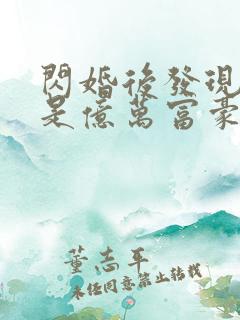 閃婚後發現
是億萬富豪
董志平
未經同意禁止轉載